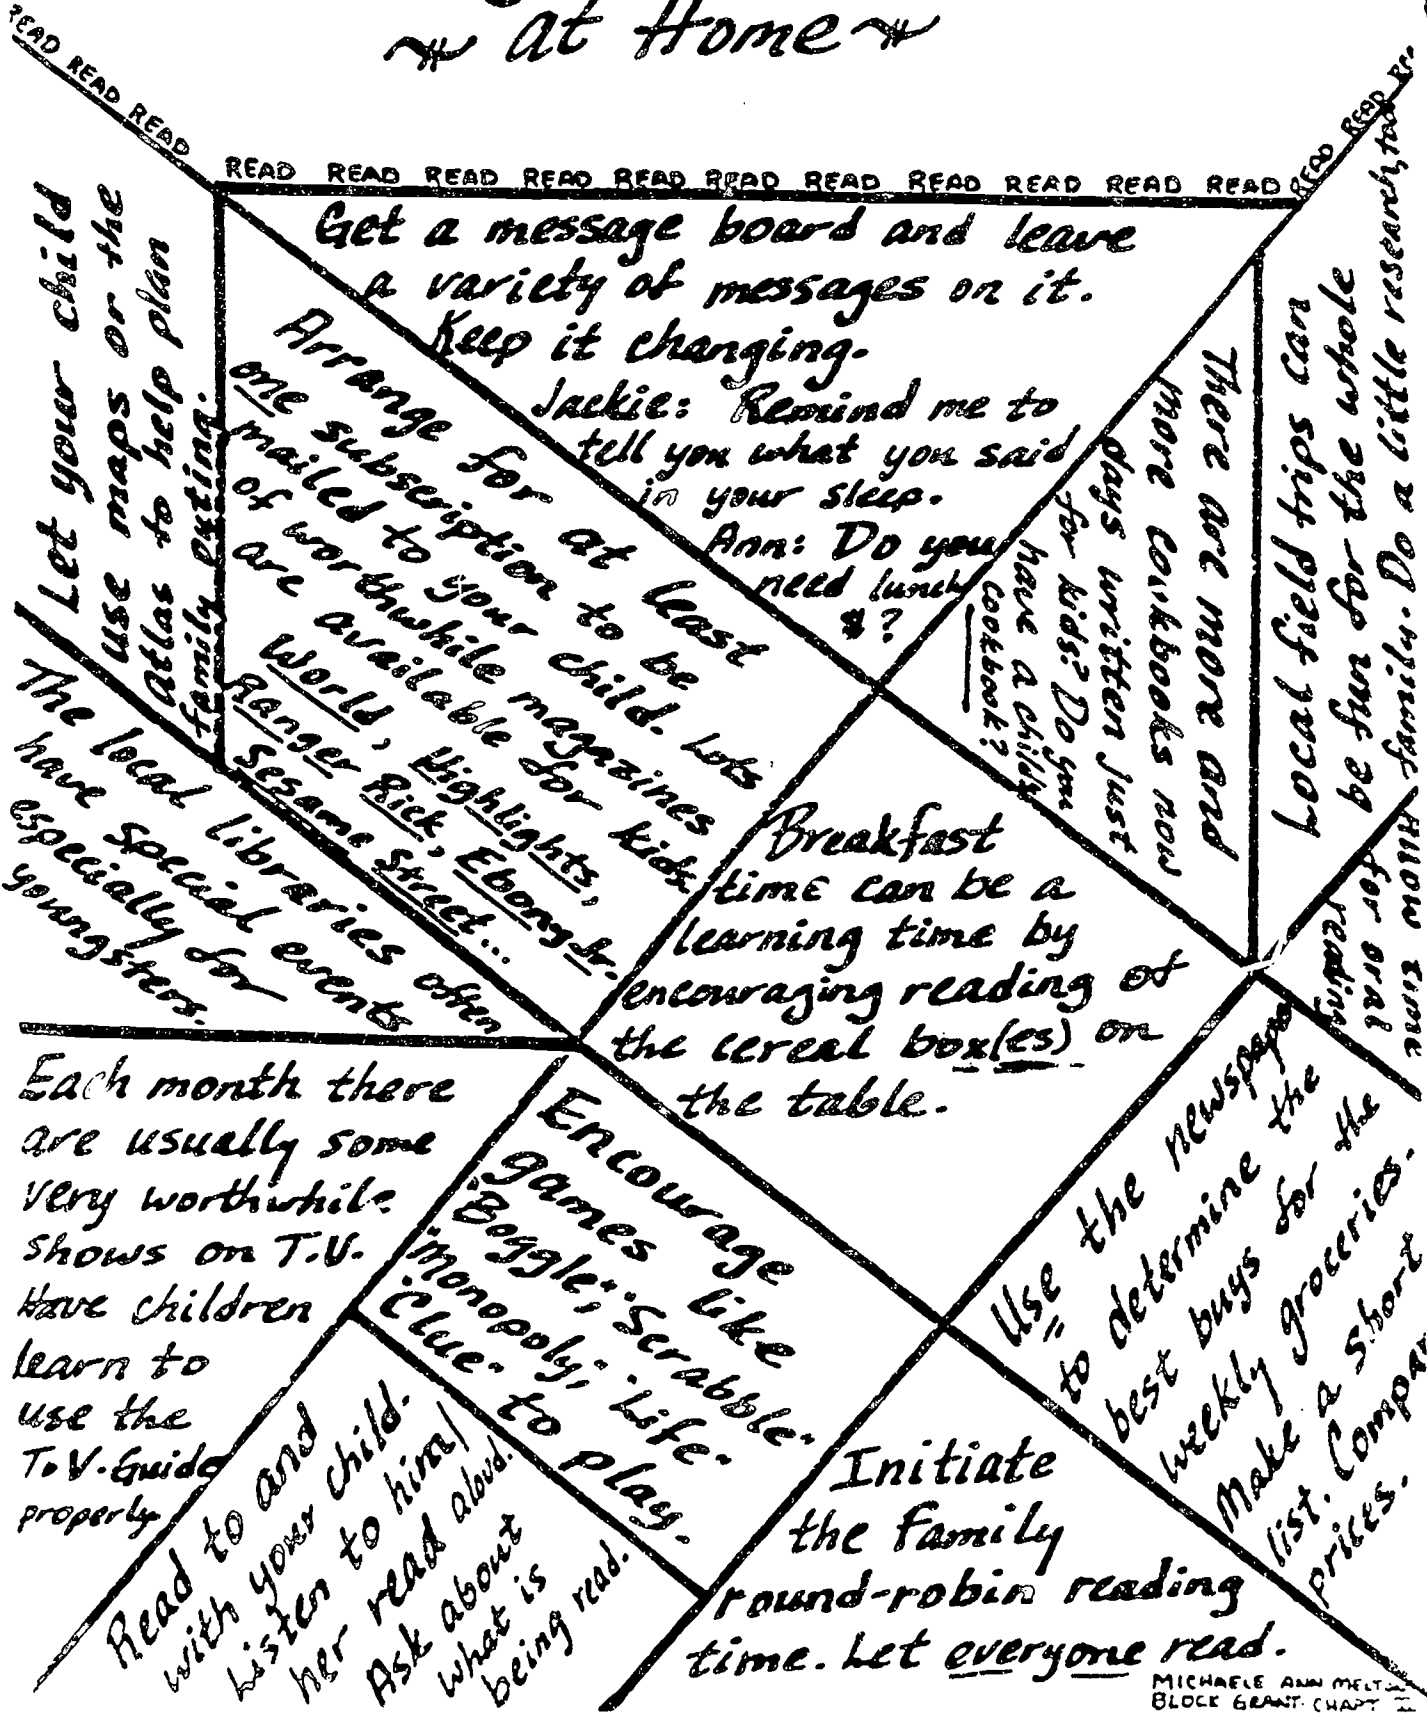 at Home
READ READ READ
READ READ READ READ READ READ READ READ READ READ READ
READ READ
Get a message board and leave
a variety of messages on it.
Keep it changing.
Jackie: Remind me to
tell you what you said
in your sleep.
Ann: Do you
need lunch
$?
Let your child
use maps or the
Atlas to help plan
family outing.
Arrange for at least
one subscription to be
mailed to your child. Lots
of worthwhile magazines
are available for kids.
World, Highlights,
Ranger Rick, Ebony Jr.
Sesame Street...
There are more and
more cookbooks now
days written just
for kids? Do you
have a child's
cookbook?
Local field trips can
be fun for the whole
family. Do a little research, too
Allow time
for oral
reading
The local libraries often
have special events
especially for
youngsters.
Breakfast
time can be a
learning time by
encouraging reading of
the cereal box(es) on
the table.
Each month there
are usually some
very worthwhile
shows on T.V.
Have children
learn to
use the
T.V. Guide
properly.
Encourage
games like
"Boggle," "Scrabble."
"Monopoly," "Life"
"Clue" to play.
Use the newspaper
to determine the
best buys for the
weekly groceries.
Make a short
list. Compare
prices.
Read to and
with your child.
Listen to him/
her read aloud.
Ask about
what is
being read.
Initiate
the family
round-robin reading
time. Let everyone read.
MICHAELE ANN MELTON
BLOCK GRANT CHAPT II